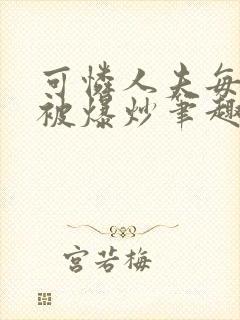 可怜人夫每
被爆炒笔趣
宫若梅